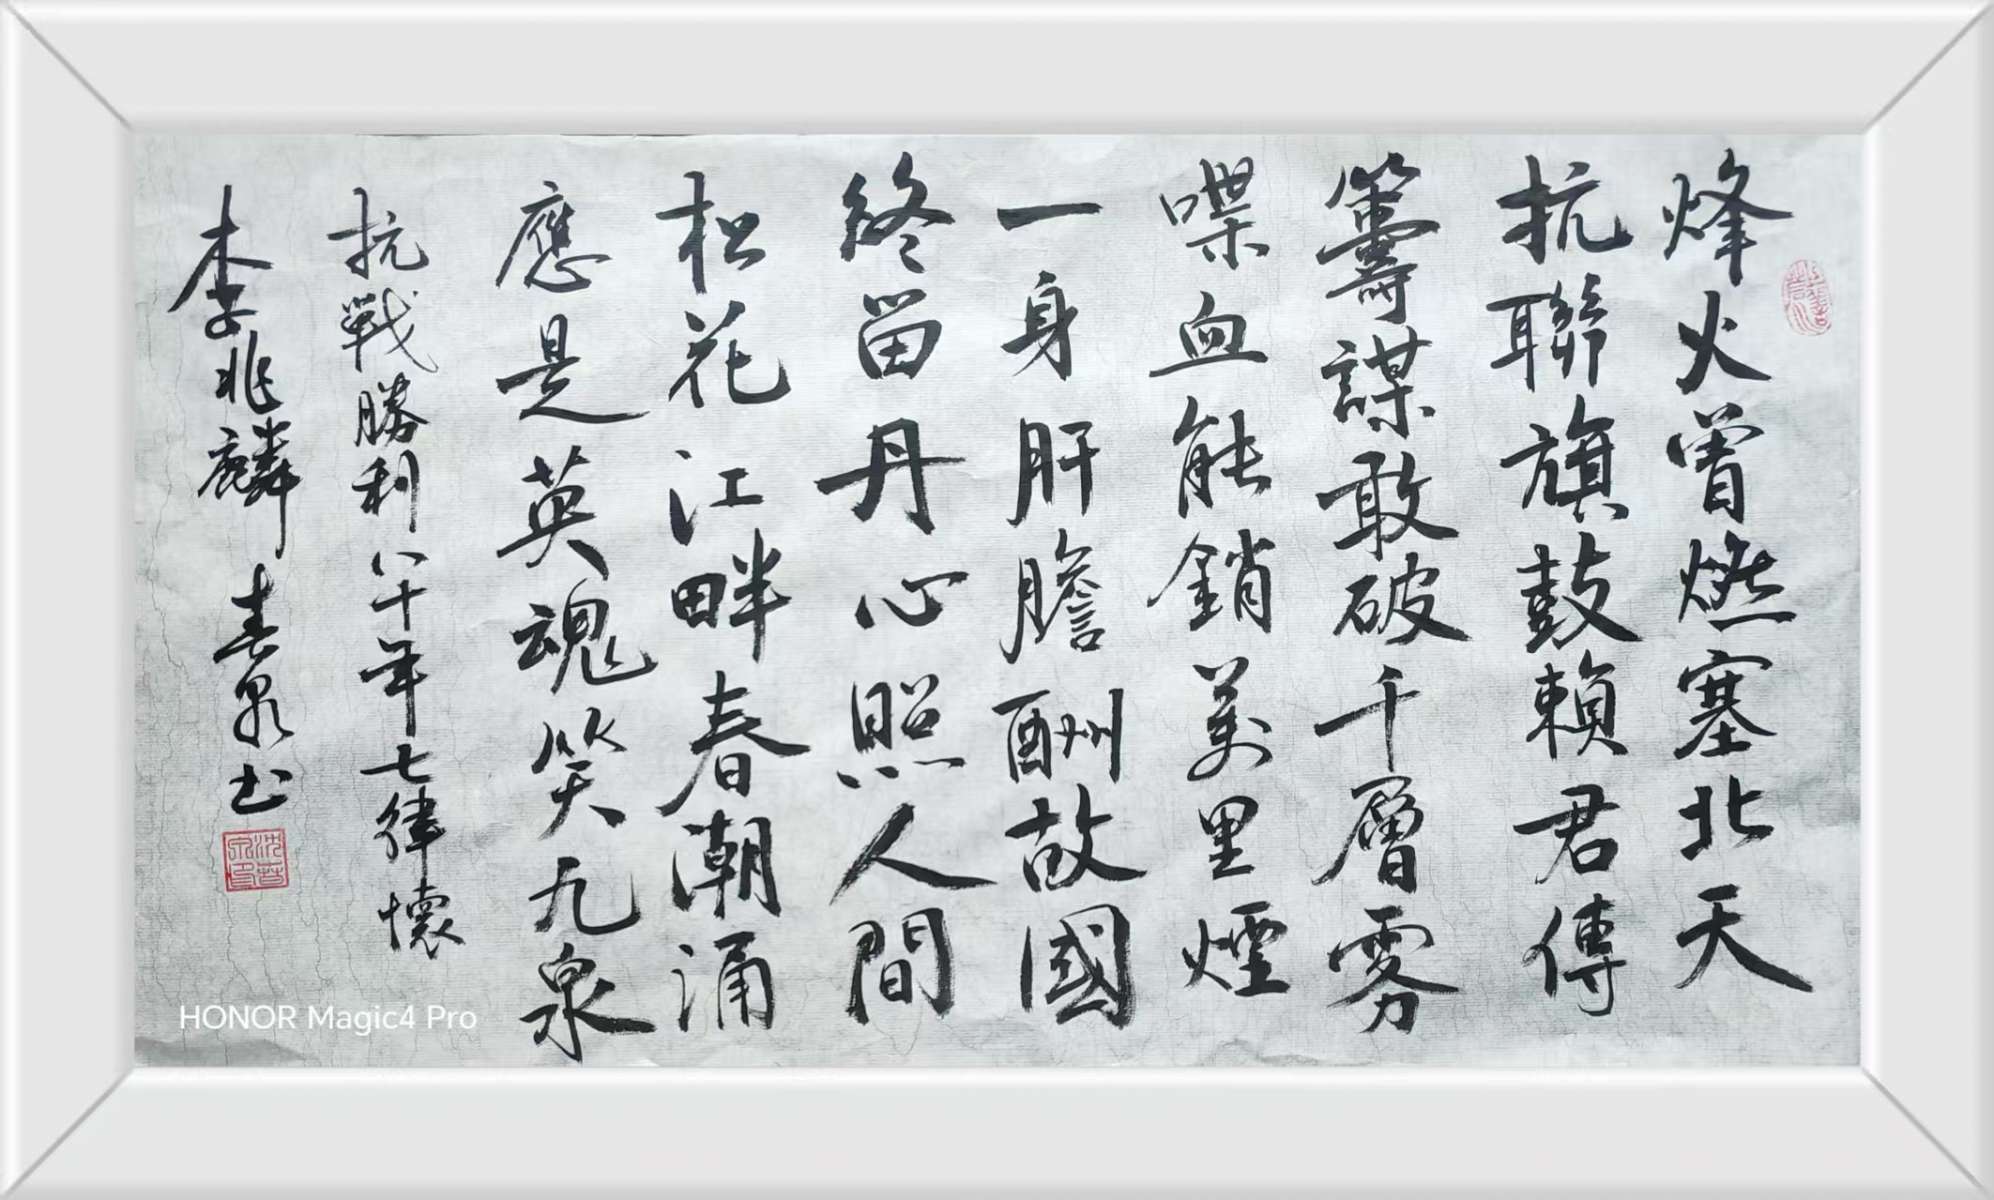 烽火曾燃塞北天
抗聯旗鼓賴君傳
籌謀敢破千層雾
喋血能銷萬里煙
一身肝膽酬故國
終留丹心照人間
松花江畔春潮涌
應是英魂笑九泉
抗戰勝利八十年七律懷
李兆麟 春泉书
HONOR Magic4 Pro